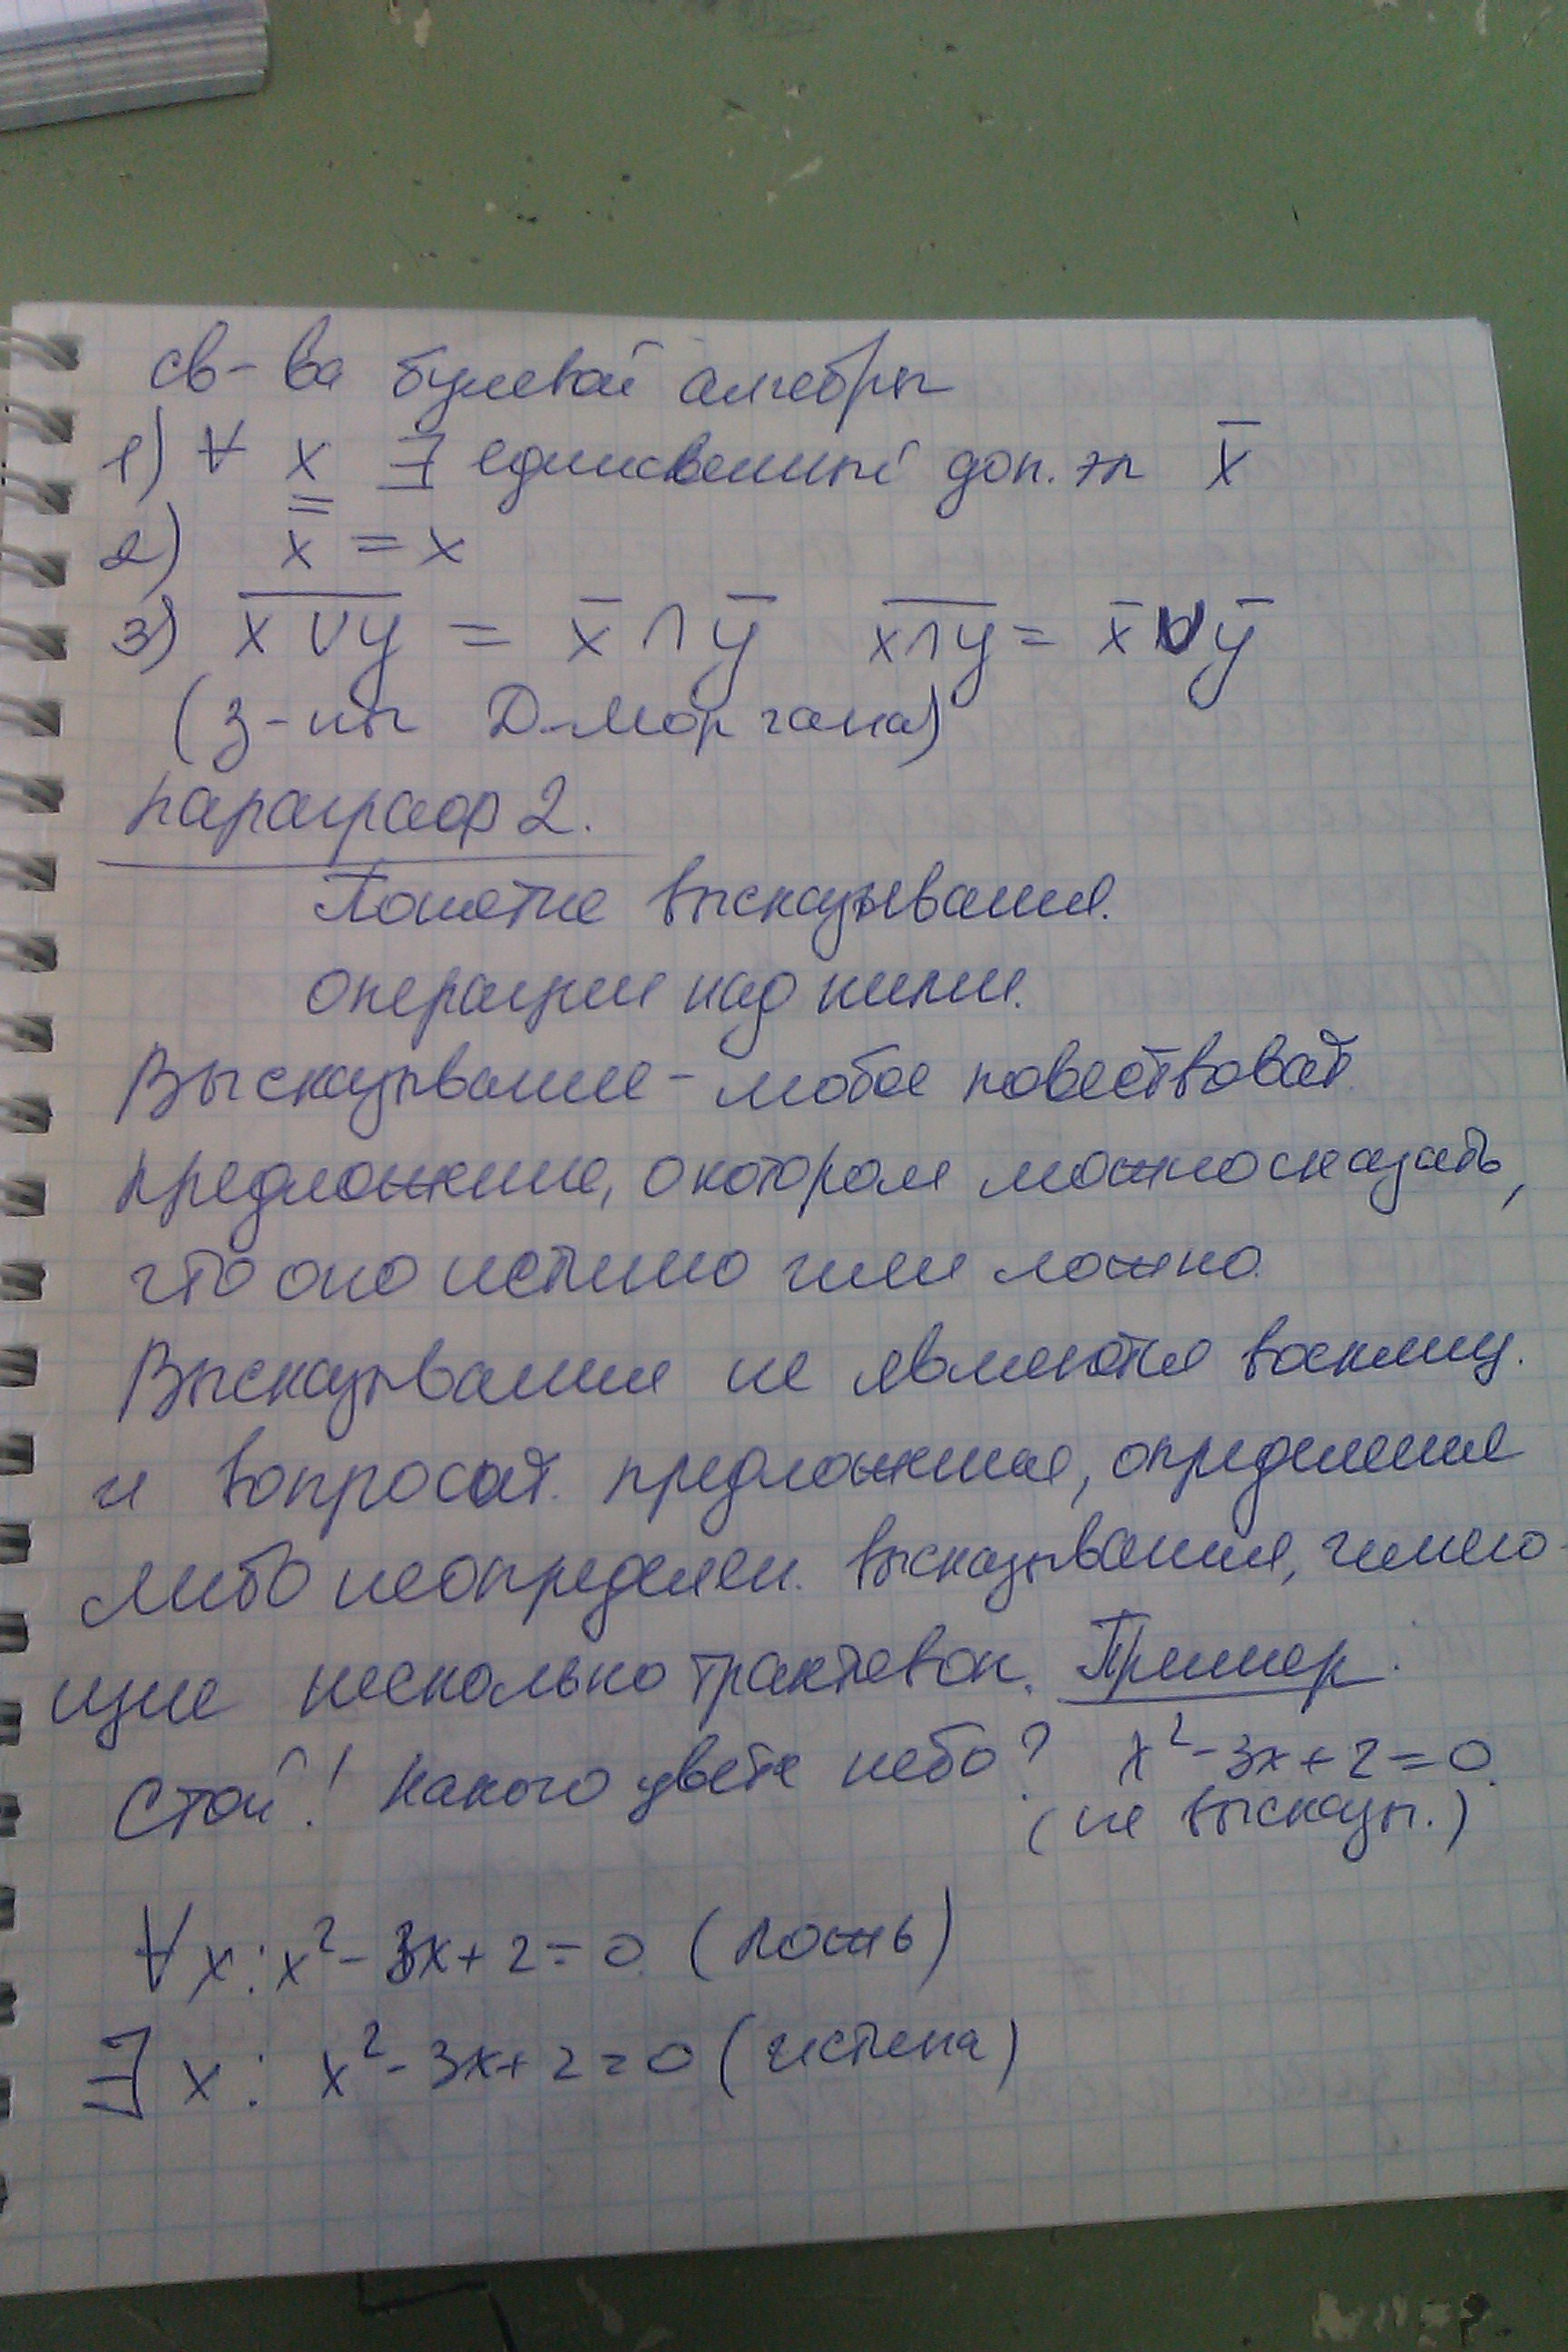 св-ва булевой алгебры
1) ∀ x ∃ единственный доп. эл x̅
2) x̿ = x
3) x̅ ̅∨̅ ̅y̅ = x̅ ∧ y̅ x̅ ̅∧̅ ̅y̅ = x̅ ∨ y̅
(з-ны Д-Моргана)
параграф 2.
Понятие высказывания.
операции над ними.
Высказывание - любое повествоват.
предложение, о котором можно сказать,
что оно истино или ложно.
Высказывания не являются восклиц.
и вопросит. предложения, определения
либо неопределен. высказывания, имею-
щие несколько трактовок. Пример.
Стой! Какого цвета небо? x² - 3x + 2 = 0.
(не высказы.)
∀ x : x² - 3x + 2 = 0. (ложь)
∃ x : x² - 3x + 2 = 0 (истина)